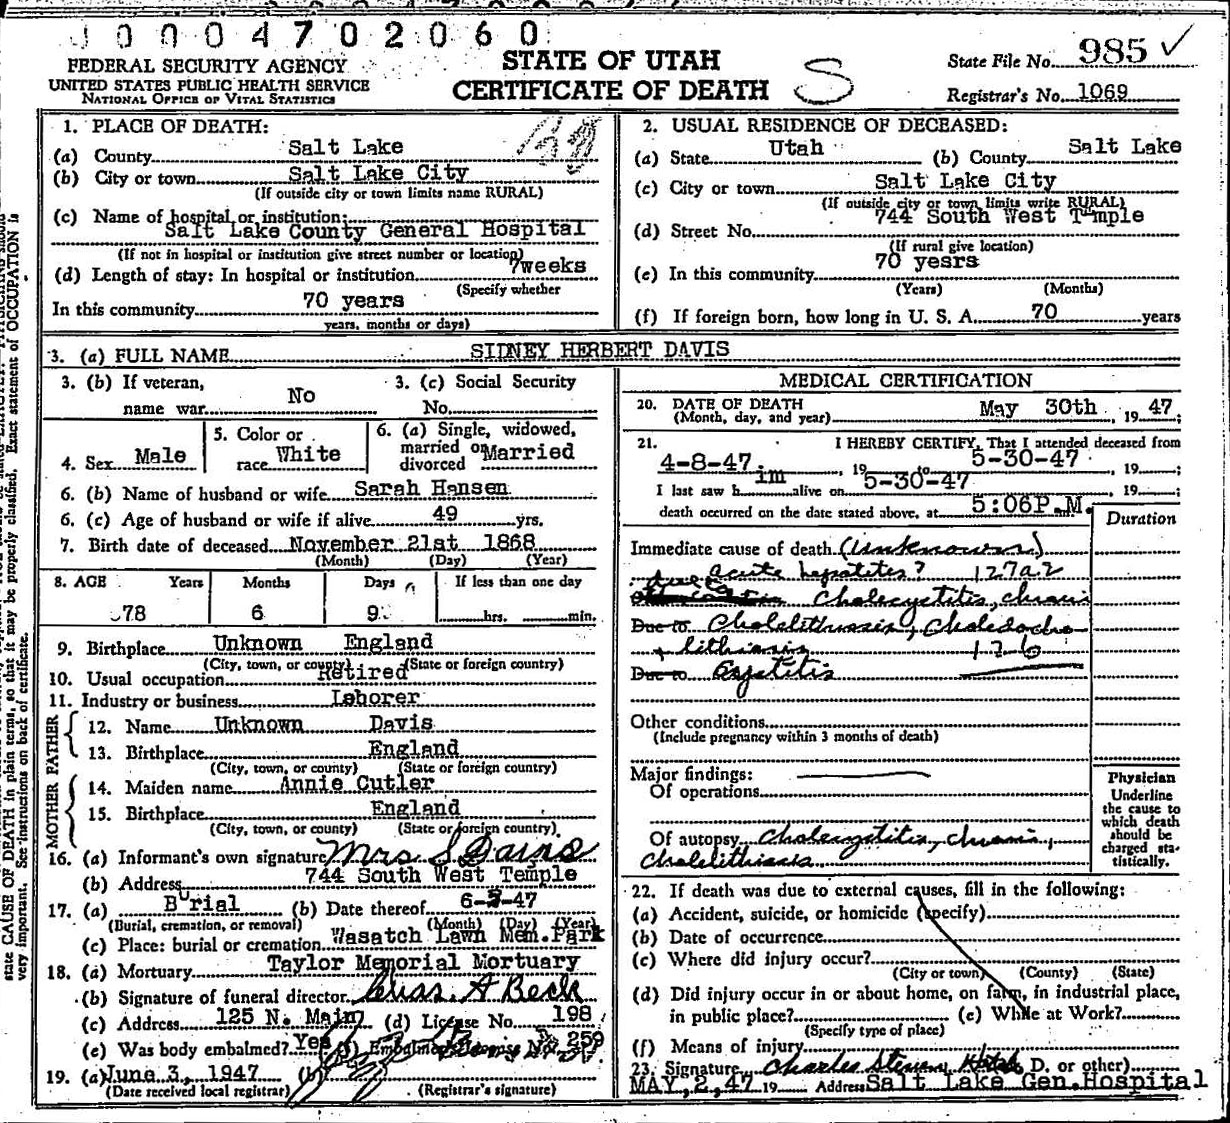 0004702060
FEDERAL SECURITY AGENCY
UNITED STATES PUBLIC HEALTH SERVICE
NATIONAL OFFICE OF VITAL STATISTICS
STATE OF UTAH
CERTIFICATE OF DEATH
S
State File No. 985 ✓
Registrar's No. 1069
1. PLACE OF DEATH:
(a) County Salt Lake
(b) City or town Salt Lake City
(If outside city or town limits name RURAL)
(c) Name of hospital or institution:
Salt Lake County General Hospital
(If not in hospital or institution give street number or location)
(d) Length of stay: In hospital or institution 7weeks
(Specify whether
In this community 70 years
years, months or days)
2. USUAL RESIDENCE OF DECEASED:
(a) State Utah (b) County Salt Lake
(c) City or town Salt Lake City
(If outside city or town limits write RURAL)
(d) Street No. 744 South West Temple
(If rural give location)
(e) In this community 70 years
(Years) (Months)
(f) If foreign born, how long in U. S. A. 70 years
3. (a) FULL NAME SIDNEY HERBERT DAVIS
3. (b) If veteran, name war No
3. (c) Social Security No.
4. Sex Male
5. Color or race White
6. (a) Single, widowed, married or divorced Married
6. (b) Name of husband or wife Sarah Hansen
6. (c) Age of husband or wife if alive 49 yrs.
7. Birth date of deceased November 21st 1868
(Month) (Day) (Year)
8. AGE Years Months Days If less than one day
78 6 9 hrs. min.
9. Birthplace Unknown England
(City, town, or county) (State or foreign country)
10. Usual occupation Retired
11. Industry or business Laborer
FATHER
12. Name Unknown Davis
13. Birthplace England
(City, town, or county) (State or foreign country)
MOTHER
14. Maiden name Annie Cutler
15. Birthplace England
(City, town, or county) (State or foreign country)
16. (a) Informant's own signature Mrs S Davis
(b) Address 744 South West Temple
17. (a) Burial (b) Date thereof 6-3-47
(Burial, cremation, or removal) (Month) (Day) (Year)
(c) Place: burial or cremation Wasatch Lawn Mem. Park
18. (a) Mortuary Taylor Memorial Mortuary
(b) Signature of funeral director Chas. A Beck
(c) Address 125 N. Main (d) License No. 198
(e) Was body embalmed? Yes (f) Embalmer's License No. 259
19. (a) June 3, 1947 (b)
(Date received local registrar) (Registrar's signature)
MEDICAL CERTIFICATION
20. DATE OF DEATH May 30th 1947;
(Month, day, and year)
21. I HEREBY CERTIFY, That I attended deceased from
4-8-47, 19 to 5-30-47, 19 ;
I last saw him alive on 5-30-47, 19 ;
death occurred on the date stated above, at 5:06P.M.
Duration
Immediate cause of death (Unknown)
acute hepatitis? 127a2
due Cholecystitis, chronic
Due to Cholelithiasis, Choledocho-
lithiasis 126
Due to Cystitis
Other conditions
(Include pregnancy within 3 months of death)
Major findings:
Of operations
Of autopsy Cholecystitis, chronic,
Cholelithiasis
Physician
Underline
the cause to
which death
should be
charged sta-
tistically.
22. If death was due to external causes, fill in the following:
(a) Accident, suicide, or homicide (specify)
(b) Date of occurrence
(c) Where did injury occur?
(City or town) (County) (State)
(d) Did injury occur in or about home, on farm, in industrial place,
in public place? (e) While at Work?
(Specify type of place)
(f) Means of injury
23. Signature Charles Stevens D. or other)
MAY, 2, 47 19 Address Salt Lake Gen. Hospital
state CAUSE OF DEATH in plain terms, so that it may be properly classified. Exact statement of OCCUPATION is
very important. See instructions on back of certificate.